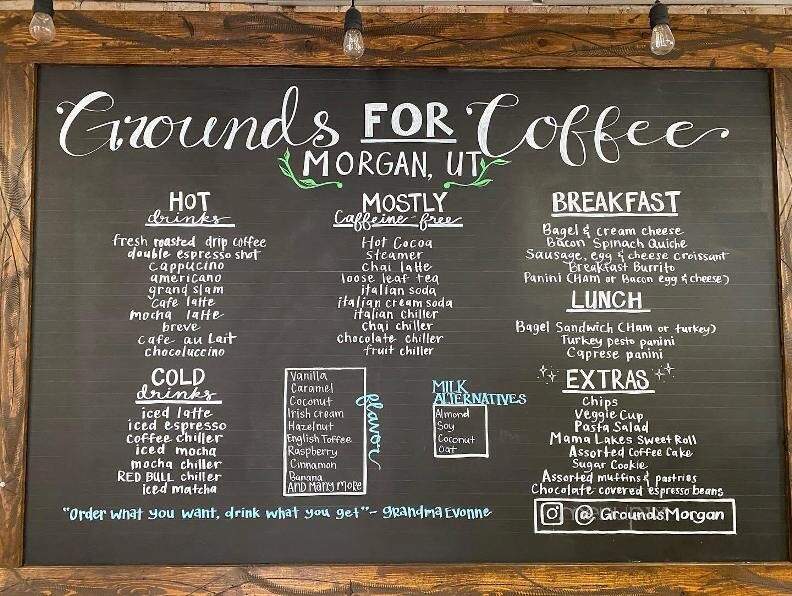 Grounds FOR Coffee
MORGAN, UT
HOT
drinks
fresh roasted drip coffee
double espresso shot
cappucino
americano
grand slam
cafe latte
mocha latte
breve
cafe au Lait
chocoluccino
COLD
drinks
iced latte
iced espresso
coffee chiller
iced mocha
mocha chiller
RED BULL chiller
iced matcha
MOSTLY
Caffeine-free
Hot Cocoa
Steamer
Chai latte
loose leaf tea
italian soda
italian cream soda
italian chiller
chai chiller
chocolate chiller
fruit chiller
flavor
Vanilla
Caramel
Coconut
Irish cream
Hazelnut
English Toffee
Raspberry
Cinnamon
Banana
AND MANY MORE
MILK
ALTERNATIVES
Almond
Soy
Coconut
Oat
BREAKFAST
Bagel & cream cheese
Bacon Spinach Quiche
Sausage, egg & cheese croissant
Breakfast Burrito
Panini (Ham or Bacon egg & cheese)
LUNCH
Bagel Sandwich (Ham or turkey)
Turkey pesto panini
Caprese panini
EXTRAS
Chips
Veggie Cup
Pasta Salad
Mama Lakes Sweet Roll
Assorted Coffee Cake
Sugar Cookie
Assorted muffins & pastries
Chocolate covered espresso beans
"Order what you want, drink what you get" - Grandma Evonne
@ GroundsMorgan